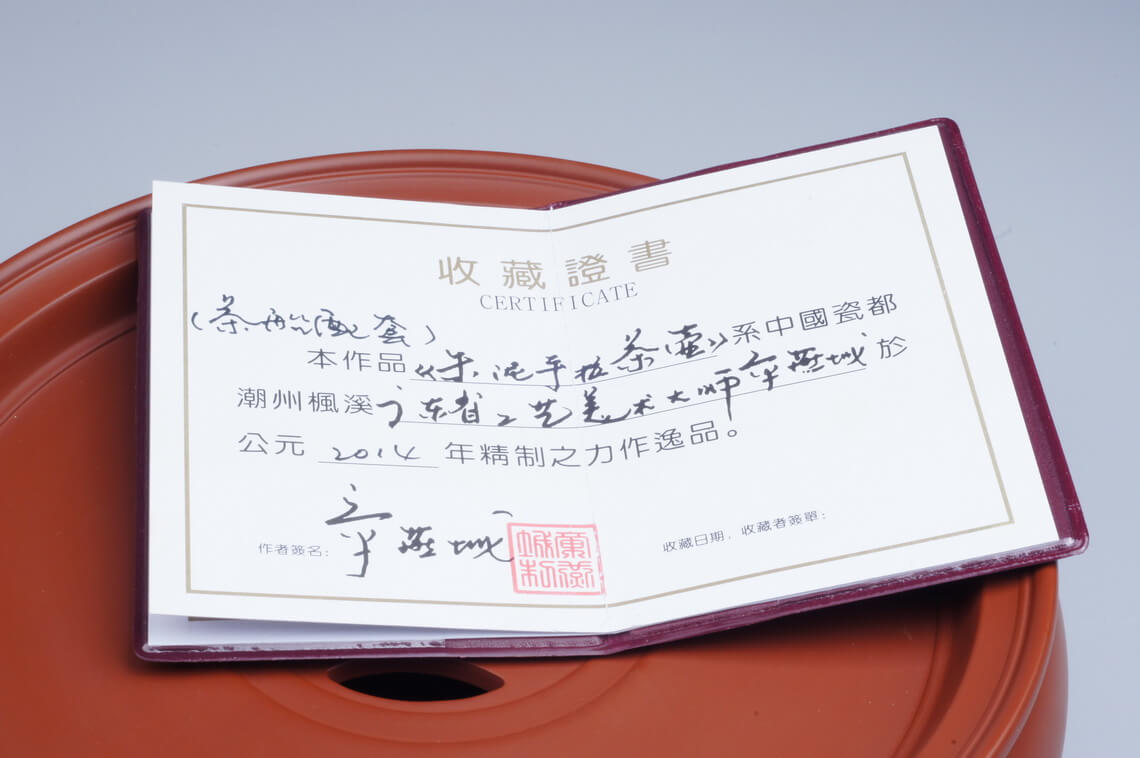 收藏證書
CERTIFICATE
(茶船配套)
本作品《朱泥手拉茶壺》系中國瓷都
潮州楓溪广东省工艺美术大师章燕城於
公元 2014 年精制之力作逸品。
作者簽名: 章燕城
收藏日期,收藏者簽單: